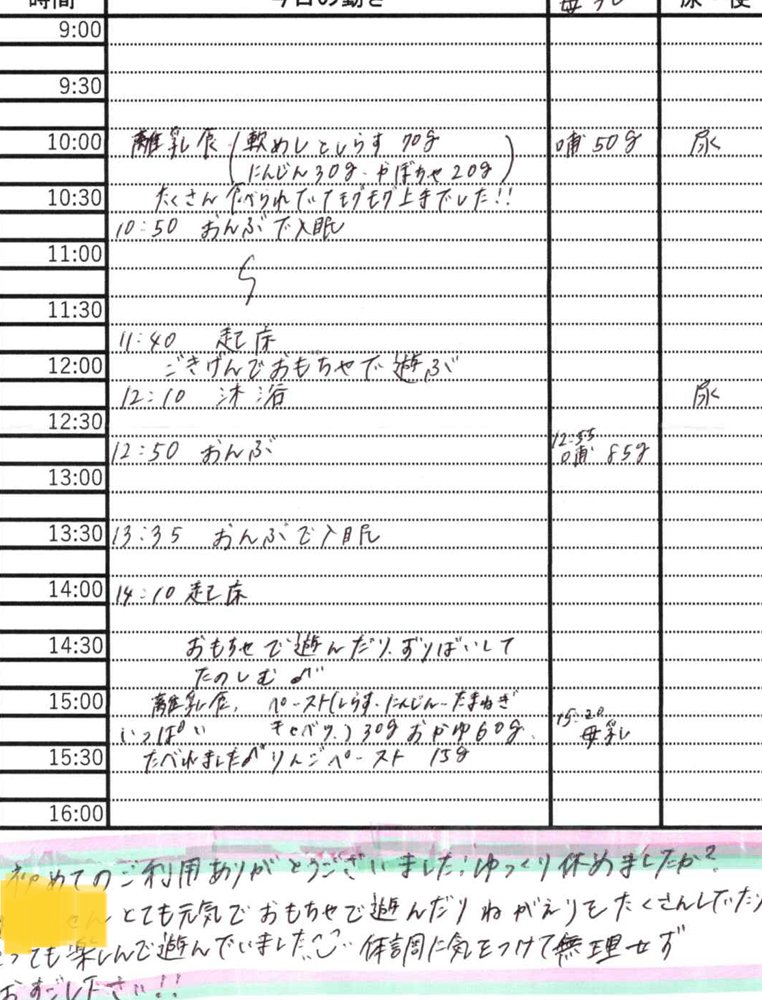 時間 今日の動き 母乳 尿・便
9:00
9:30
10:00 離乳食 (軟めしとしらす 70g 哺 50g 尿
にんじん30g・かぼちゃ20g)
10:30 たくさん食べられていてモグモグ上手でした!!
10:50 おんぶで入眠
11:00
11:30
11:40 起床
12:00 ごきげんでおもちゃで遊ぶ
12:10 沐浴 尿
12:30
12:50 おんぶ 12:55 哺 85g
13:00
13:30 13:35 おんぶで入眠
14:00 14:10 起床
14:30 おもちゃで遊んだり、ずりばいして
たのしむ♬
15:00 離乳食、ペースト(しらす・にんじん・たまねぎ 15:20
いっぱい キャベツ) 30g おかゆ60g、 母乳
15:30 たべれました♬ りんごペースト 15g
16:00
初めてのご利用ありがとうございました!ゆっくり休めましたか?
さん とても元気でおもちゃで遊んだりねがえりをたくさんしていたり
とっても楽しんで遊んでいました 体調に気をつけて無理せず
おすごし下さい!!